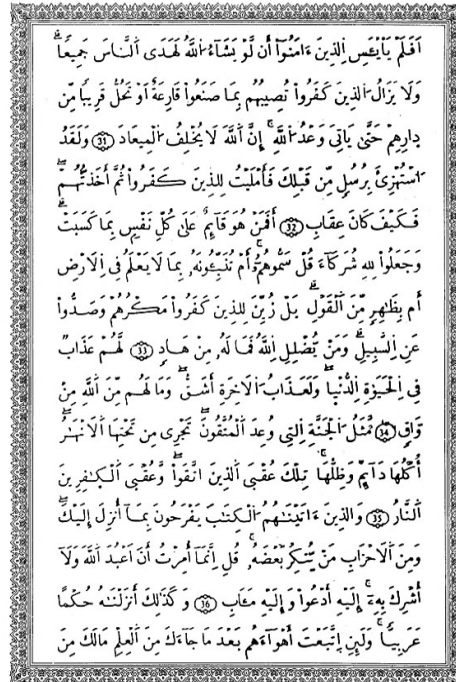 اَفَلَمْ يَاْيْـَٔسِ اِ۬لذِينَ ءَامَنُوٓاْ أَن لَّوْ يَشَآءُ اُ۬للَّهُ لَهَدَي اَ۬لنَّاسَ جَمِيعاًۖ
وَلَا يَزَالُ اُ۬لذِينَ كَفَرُواْ تُصِيبُهُم بِمَا صَنَعُواْ قَارِعَةٌ اَوْ تَحُلُّ قَرِيباً مِّن
دِارِهِمْ حَتَّىٰ يَاتِيَ وَعْدُ اُ۬للَّهِۖ إِنَّ اَ۬للَّهَ لَا يُخْلِفُ اُ۬لْمِيعَادَۖ 31 وَلَقَدُ
اُ۟سْتُهْزِئَ بِرُسُلٍ مِّن قَبْلِكَ فَأَمْلَيْتُ لِلذِينَ كَفَرُواْ ثُمَّ أَخَذتُّهُمْۖ
فَكَيْفَ كَانَ عِقَابِۖ 32 أَفَمَنْ هُوَ قَآئِمٌ عَلَىٰ كُلِّ نَفْسٍۢ بِمَا كَسَبَتْۖ
وَجَعَلُواْ لِلهِ شُرَكَآءَ قُلْ سَمُّوهُمُۥٓۖ أَمْ تُنَبِّـُٔونَهُۥ بِمَا لَا يَعْلَمُ فِي اِ۬لَارْضِ
أَم بِظَٰهِرٍ مِّنَ اَ۬لْقَوْلِۖ بَلْ زُيِّنَ لِلذِينَ كَفَرُواْ مَكْرُهُمْ وَصَدُّواْ
عَنِ اِ۬لسَّبِيلِۖ وَمَنْ يُّضْلِلِ اِ۬للَّهُ فَمَا لَهُۥ مِنْ هَادٍۖ 33 لَّهُمْ عَذَابٌ
فِي اِ۬لْحَيَوٰةِ اِ۬لدُّنْي۪اۖ وَلَعَذَابُ اُ۬لَاخِرَةِ أَشَقُّۖ وَمَا لَهُم مِّنَ اَ۬للَّهِ مِنْ
وَّاقٍۖ 34 مَّثَلُ اُ۬لْجَنَّةِ اِ۬لتِي وُعِدَ اَ۬لْمُتَّقُونَۖ تَجْرِي مِن تَحْتِهَا اَ۬لَانْهَٰرُۖ
أُكْلُهَا دَآئِمٌ وَظِلُّهَاۖ تِلْكَ عُقْبَي اَ۬لذِينَ اَ۪تَّقَواْۖ وَّعُقْبَي اَ۬لْكٰ۪فِرِينَ
اَ۬لنَّارُۖ 35 وَالذِينَ ءَاتَيْنَٰهُمُ اُ۬لْكِتَٰبَ يَفْرَحُونَ بِمَآ أُنزِلَ إِلَيْكَۖ
وَمِنَ اَ۬لَاحْزَابِ مَنْ يُّنكِرُ بَعْضَهُۥۖ قُلِ اِنَّمَآ أُمِرْتُ أَنَ اَعْبُدَ اَ۬للَّهَ وَلَآ
أُشْرِكَ بِهِۦٓۖ إِلَيْهِ أَدْعُواْ وَإِلَيْهِ مَـَٔابِۖ 36 وَكَذَٰلِكَ أَنزَلْنَٰهُ حُكْماً
عَرَبِيّاًۖ وَلَئِنِ اِ۪تَّبَعْتَ أَهْوَآءَهُم بَعْدَ مَا جَآءَكَ مِنَ اَ۬لْعِلْمِ مَا لَكَ مِنَ